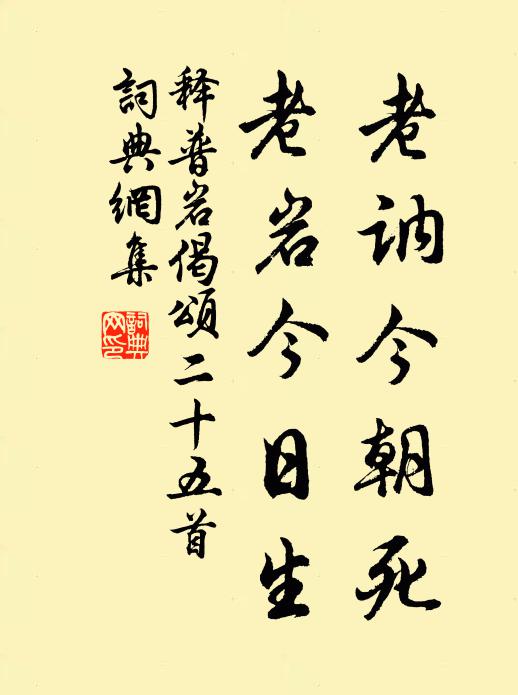 老訥今朝死
老岩今日生
释普岩偈頌二十五首
詞典網集
詞典網印